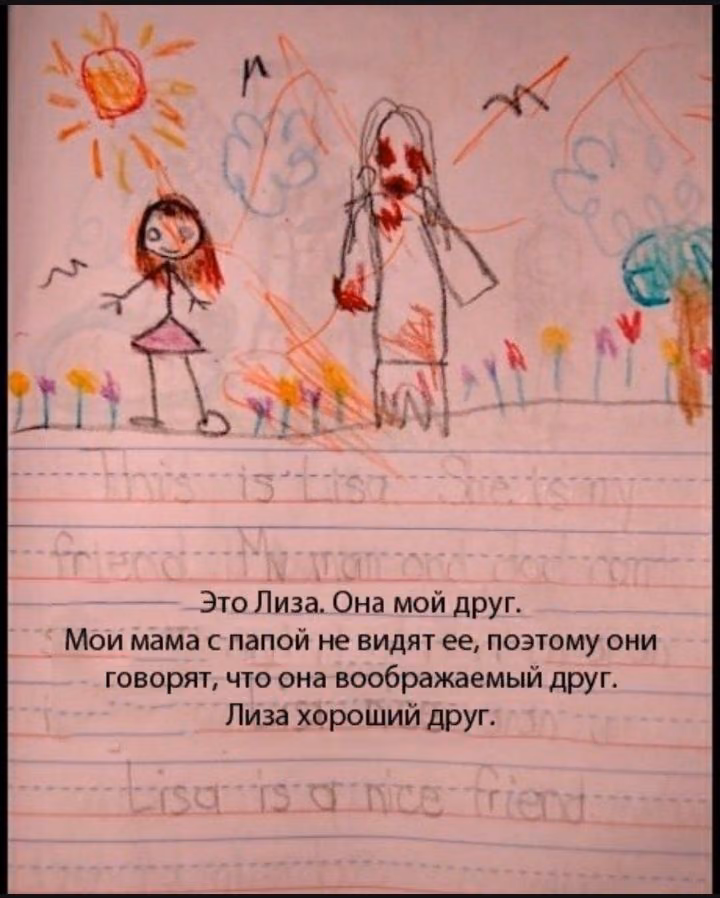 This is Lisa. She is my
friend. My mom and dad can
Это Лиза. Она мой друг.
Мои мама с папой не видят ее, поэтому они
говорят, что она воображаемый друг.
Лиза хороший друг.
Lisa is a nice friend